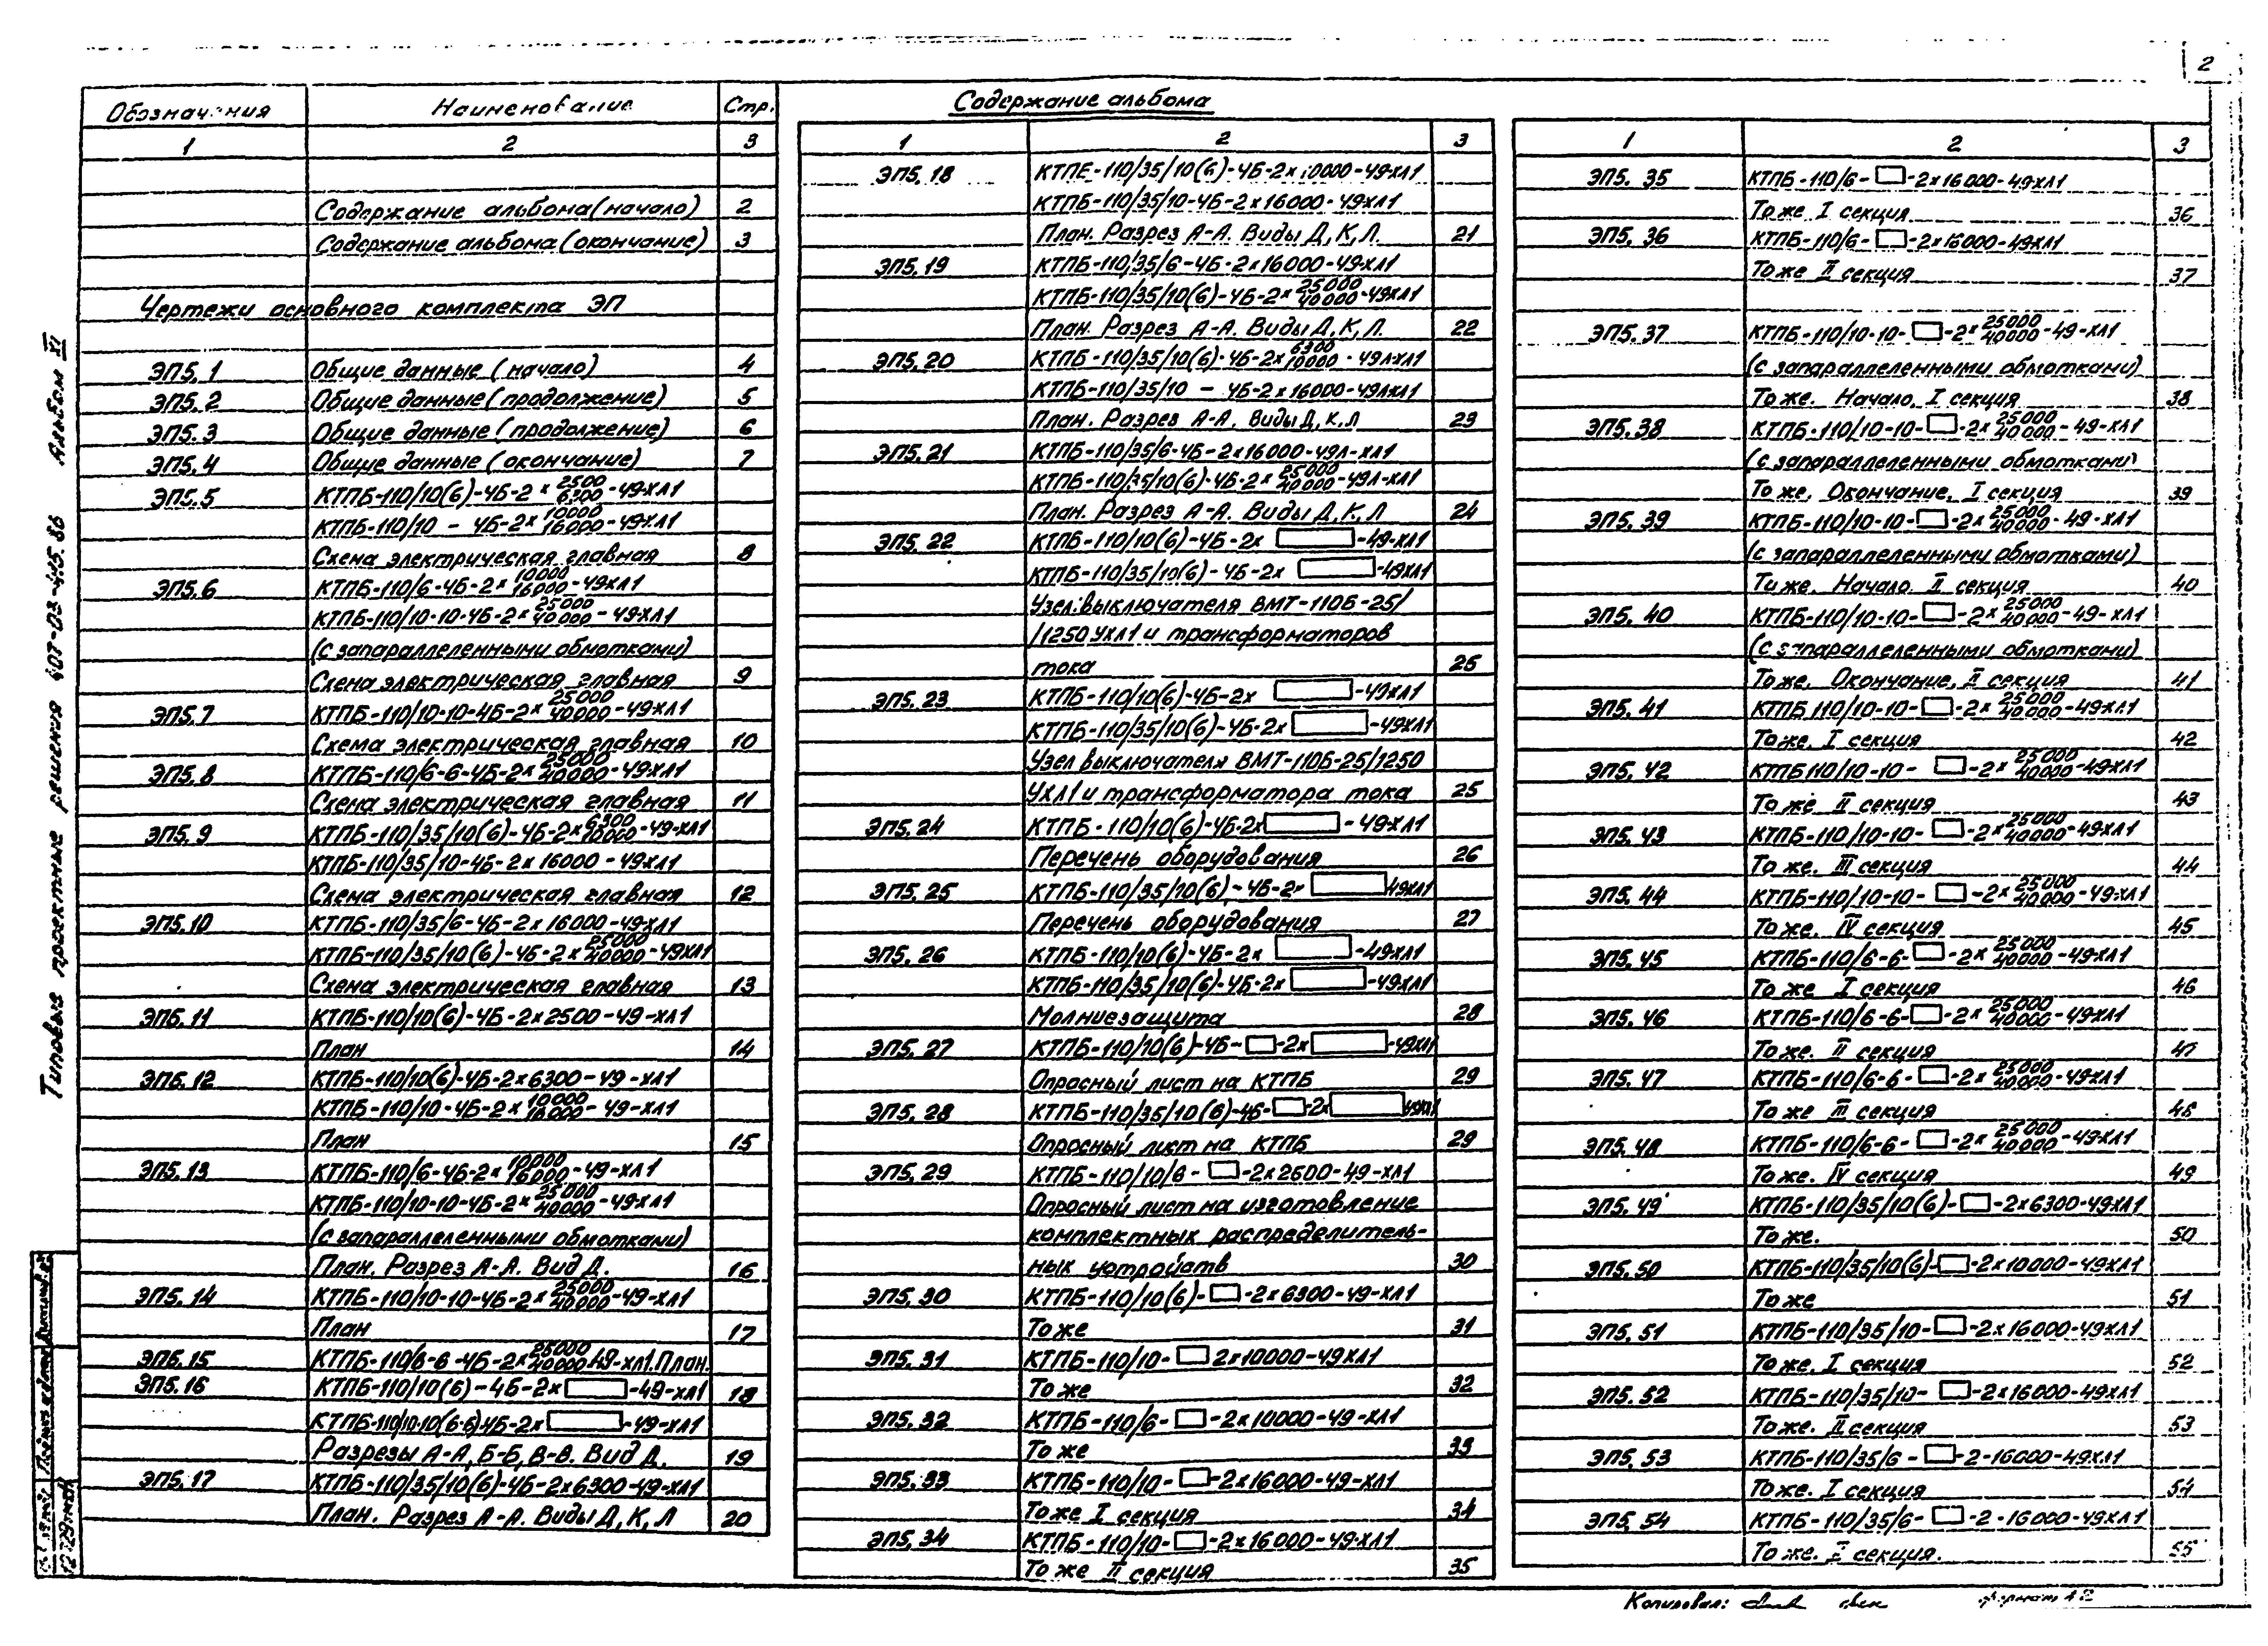 2
Содержание альбома
Обозначения Наименование Стр.
1 2 3
Содержание альбома (начало) 2
Содержание альбома (окончание) 3
Чертежи основного комплекта ЭП
ЭП5.1 Общие данные (начало) 4
ЭП5.2 Общие данные (продолжение) 5
ЭП5.3 Общие данные (продолжение) 6
ЭП5.4 Общие данные (окончание) 7
ЭП5.5 КТПБ-110/10(6)-4Б-2×2500/6300-49-ХЛ1
КТПБ-110/10-4Б-2×10000/16000-49-ХЛ1
Схема электрическая главная 8
ЭП5.6 КТПБ-110/6-4Б-2×10000/16000-49ХЛ1
КТПБ-110/10-10-4Б-2×25000/40000-49-ХЛ1
(с запараллеленными обмотками)
Схема электрическая главная 9
ЭП5.7 КТПБ-110/10-10-4Б-2×25000/40000-49ХЛ1
Схема электрическая главная 10
ЭП5.8 КТПБ-110/6-6-4Б-2×25000/40000-49ХЛ1
Схема электрическая главная 11
ЭП5.9 КТПБ-110/35/10(6)-4Б-2×6300/10000-49-ХЛ1
КТПБ-110/35/10-4Б-2×16000-49ХЛ1
Схема электрическая главная 12
ЭП5.10 КТПБ-110/35/6-4Б-2×16000-49-ХЛ1
КТПБ-110/35/10(6)-4Б-2×25000/40000-49ХЛ1
Схема электрическая главная 13
ЭП5.11 КТПБ-110/10(6)-4Б-2×2500-49-ХЛ1
План 14
ЭП5.12 КТПБ-110/10(6)-4Б-2×6300-49-ХЛ1
КТПБ-110/10-4Б-2×10000/16000-49-ХЛ1
План 15
ЭП5.13 КТПБ-110/6-4Б-2×10000/16000-49-ХЛ1
КТПБ-110/10-10-4Б-2×25000/40000-49-ХЛ1
(с запараллеленными обмотками)
План. Разрез А-А. Вид Д. 16
ЭП5.14 КТПБ-110/10-10-4Б-2×25000/40000-49-ХЛ1
План 17
ЭП5.15 КТПБ-110/6-6-4Б-2×25000/40000-49-ХЛ1. План.
ЭП5.16 КТПБ-110/10(6)-4Б-2×□-49-ХЛ1 18
КТПБ-110/10-10(6-6)-4Б-2×□-49-ХЛ1
Разрезы А-А, Б-Б, В-В. Вид Д. 19
ЭП5.17 КТПБ-110/35/10(6)-4Б-2×6300-49-ХЛ1
План. Разрез А-А. Виды Д, К, Л 20
1 2 3
ЭП5.18 КТПБ-110/35/10(6)-4Б-2×10000-49-ХЛ1
КТПБ-110/35/10-4Б-2×16000-49ХЛ1
План. Разрез А-А. Виды Д, К, Л. 21
ЭП5.19 КТПБ-110/35/6-4Б-2×16000-49-ХЛ1
КТПБ-110/35/10(6)-4Б-2×25000/40000-49ХЛ1
План. Разрез А-А. Виды Д, К, Л. 22
ЭП5.20 КТПБ-110/35/10(6)-4Б-2×6300/10000-49Л-ХЛ1
КТПБ-110/35/10-4Б-2×16000-49ЛХЛ1
План. Разрез А-А, Виды Д, К, Л 23
ЭП5.21 КТПБ-110/35/6-4Б-2×16000-49Л-ХЛ1
КТПБ-110/35/10(6)-4Б-2×25000/40000-49Л-ХЛ1
План. Разрез А-А. Виды Д, К, Л 24
ЭП5.22 КТПБ-110/10(6)-4Б-2×□-49-ХЛ1
КТПБ-110/35/10(6)-4Б-2×□-49ХЛ1
Узел выключателя ВМТ-110Б-25/
/1250 УХЛ1 и трансформаторов
тока 25
ЭП5.23 КТПБ-110/10(6)-4Б-2×□-49ХЛ1
КТПБ-110/35/10(6)-4Б-2×□-49ХЛ1
Узел выключателя ВМТ-110Б-25/1250
УХЛ1 и трансформатора тока 25
ЭП5.24 КТПБ-110/10(6)-4Б-2×□-49-ХЛ1
Перечень оборудования 26
ЭП5.25 КТПБ-110/35/10(6)-4Б-2×□49ХЛ1
Перечень оборудования 27
ЭП5.26 КТПБ-110/10(6)-4Б-2×□-49ХЛ1
КТПБ-110/35/10(6)-4Б-2×□-49ХЛ1
Молниезащита 28
ЭП5.27 КТПБ-110/10(6)-4Б-□-2×□-49ХЛ1
Опросный лист на КТПБ 29
ЭП5.28 КТПБ-110/35/10(6)-4Б-□-2×□49ХЛ1
Опросный лист на КТПБ 29
ЭП5.29 КТПБ-110/10/6-□-2×2500-49-ХЛ1
Опросный лист на изготовление
комплектных распределитель-
ных устройств 30
ЭП5.30 КТПБ-110/10(6)-□-2×6300-49-ХЛ1
То же 31
ЭП5.31 КТПБ-110/10-□2×10000-49ХЛ1
То же 32
ЭП5.32 КТПБ-110/6-□-2×10000-49-ХЛ1
То же 33
ЭП5.33 КТПБ-110/10-□-2×16000-49-ХЛ1
То же I секция 34
ЭП5.34 КТПБ-110/10-□-2×16000-49-ХЛ1
То же II секция 35
1 2 3
ЭП5.35 КТПБ-110/6-□-2×16000-49-ХЛ1
То же I секция 36
ЭП5.36 КТПБ-110/6-□-2×16000-49ХЛ1
То же II секция 37
ЭП5.37 КТПБ-110/10-10-□-2×25000/40000-49-ХЛ1
(с запараллеленными обмотками)
То же. Начало, I секция 38
ЭП5.38 КТПБ-110/10-10-□-2×25000/40000-49-ХЛ1
(с запараллеленными обмотками)
То же. Окончание, I секция 39
ЭП5.39 КТПБ-110/10-10-□-2×25000/40000-49-ХЛ1
(с запараллеленными обмотками)
То же. Начало II секция 40
ЭП5.40 КТПБ-110/10-10-□-2×25000/40000-49-ХЛ1
(с запараллеленными обмотками)
То же. Окончание, II секция 41
ЭП5.41 КТПБ 110/10-10-□-2×25000/40000-49-ХЛ1
То же. I секция 42
ЭП5.42 КТПБ 110/10-10-□-2×25000/40000-49ХЛ1
То же II секция 43
ЭП5.43 КТПБ-110/10-10-□-2×25000/40000-49ХЛ1
То же. III секция 44
ЭП5.44 КТПБ-110/10-10-□-2×25000/40000-49-ХЛ1
То же. IV секция 45
ЭП5.45 КТПБ-110/6-6-□-2×25000/40000-49ХЛ1
То же I секция 46
ЭП5.46 КТПБ-110/6-6-□-2×25000/40000-49ХЛ1
То же. II секция 47
ЭП5.47 КТПБ-110/6-6-□-2×25000/40000-49ХЛ1
То же III секция 48
ЭП5.48 КТПБ-110/6-6-□-2×25000/40000-49ХЛ1
То же. IV секция 49
ЭП5.49 КТПБ-110/35/10(6)-□-2×6300-49ХЛ1
То же. 50
ЭП5.50 КТПБ-110/35/10(6)-□-2×10000-49ХЛ1
То же 51
ЭП5.51 КТПБ-110/35/10-□-2×16000-49ХЛ1
То же. I секция 52
ЭП5.52 КТПБ-110/35/10-□-2×16000-49ХЛ1
То же. II секция 53
ЭП5.53 КТПБ-110/35/6-□-2-16000-49ХЛ1
То же. I секция 54
ЭП5.54 КТПБ-110/35/6-□-2-16000-49ХЛ1
То же. секция. 55
Типовые проектные решения 407-03-415.86 Альбом XI
Копировал:
формат А2